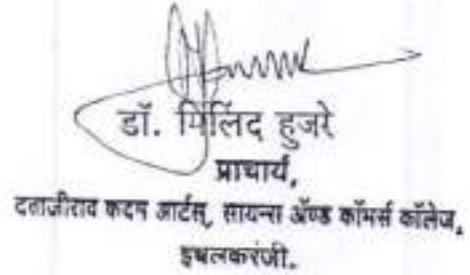 डॉ. मिलिंद हुजरे
प्राचार्य,
दत्ताजीराव कदम आर्टस्, सायन्स अ‍ॅण्ड कॉमर्स कॉलेज,
इचलकरंजी.